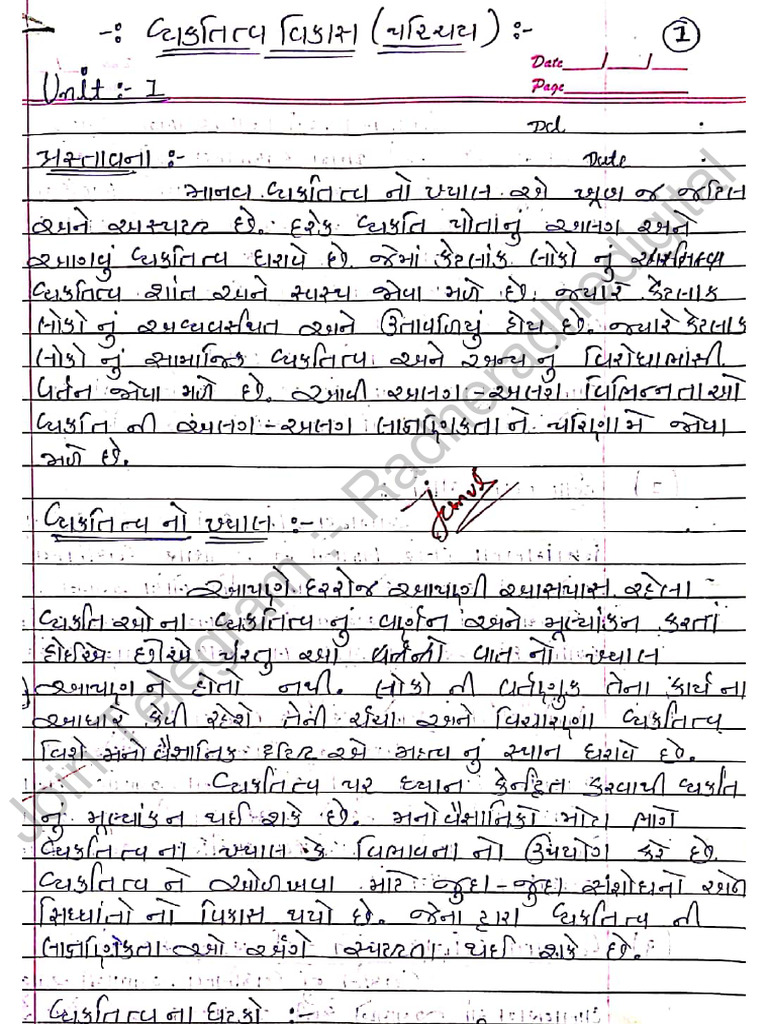 -: વ્યકતિત્વ વિકાસ (પરિચય) :- 1
Date / /
Unit :- I Page
Dd :
પ્રસ્તાવના :- Date :
માનવ વ્યકતિત્વ નો ખ્યાલ એ ખૂબ જ જટિલ
અને અસ્પષ્ટ છે. દરેક વ્યકતિ પોતાનું અલગ અને
આગવું વ્યકતિત્વ ધરાવે છે. જેમાં કેટલાંક લોકો નું
વ્યકતિત્વ શાંત અને સ્વસ્થ જોવા મળે છે. જ્યારે કેટલાક
લોકો નું અવ્યવસ્થિત અને ઉતાવળિયું હોય છે. જ્યારે કેટલાક
લોકો નું સામાજિક વ્યકતિત્વ અને અન્ય નુ વિરોધાભાસી
વર્તન જોવા મળે છે. આવી અલગ-અલગ વિભિન્નતાઓ
વ્યકતિ ની અલગ-અલગ લાક્ષણિકતા ને પરિણામે જોવા
મળે છે.
વ્યકતિત્વ નો ખ્યાલ :-
આપણે દરરોજ આપણી આસપાસ રહેલા
વ્યકતિઓ ના વ્યકતિત્વ નું વર્ણન અને મૂલ્યાંકન કરતાં
હોઈએ છીએ પરંતુ આ વાત નો ખ્યાલ
આપણ ને હોતો નથી. લોકો ની વર્તણુક તેના કાર્ય ના
આધારે કેવી રહેશે તેની ચર્ચા અને વિચારણા વ્યકતિત્વ
વિશે મનોવૈજ્ઞાનિક દ્રષ્ટિએ મહત્વ નું સ્થાન ધરાવે છે.
વ્યકતિત્વ પર ધ્યાન કેન્દ્રિત કરવાથી વ્યકતિ
નું મૂલ્યાંકન થઈ શકે છે. મનોવૈજ્ઞાનિકો મોટા ભાગે
વ્યકતિત્વ ના ખ્યાલ કે વિભાવના નો ઉપયોગ કરે છે.
વ્યકતિત્વ ને ઓળખવા માટે જુદા-જુદા સંશોધનો અને
સિધ્ધાંતો નો વિકાસ થયો છે. જેના દ્વારા વ્યકતિત્વ ની
લાક્ષણિકતા ઓ અંગે સ્પષ્ટતા થઈ શકે છે.
વ્યકતિત્વ ના ઘટકો :-
Join Telegram :- Radheradhedigital